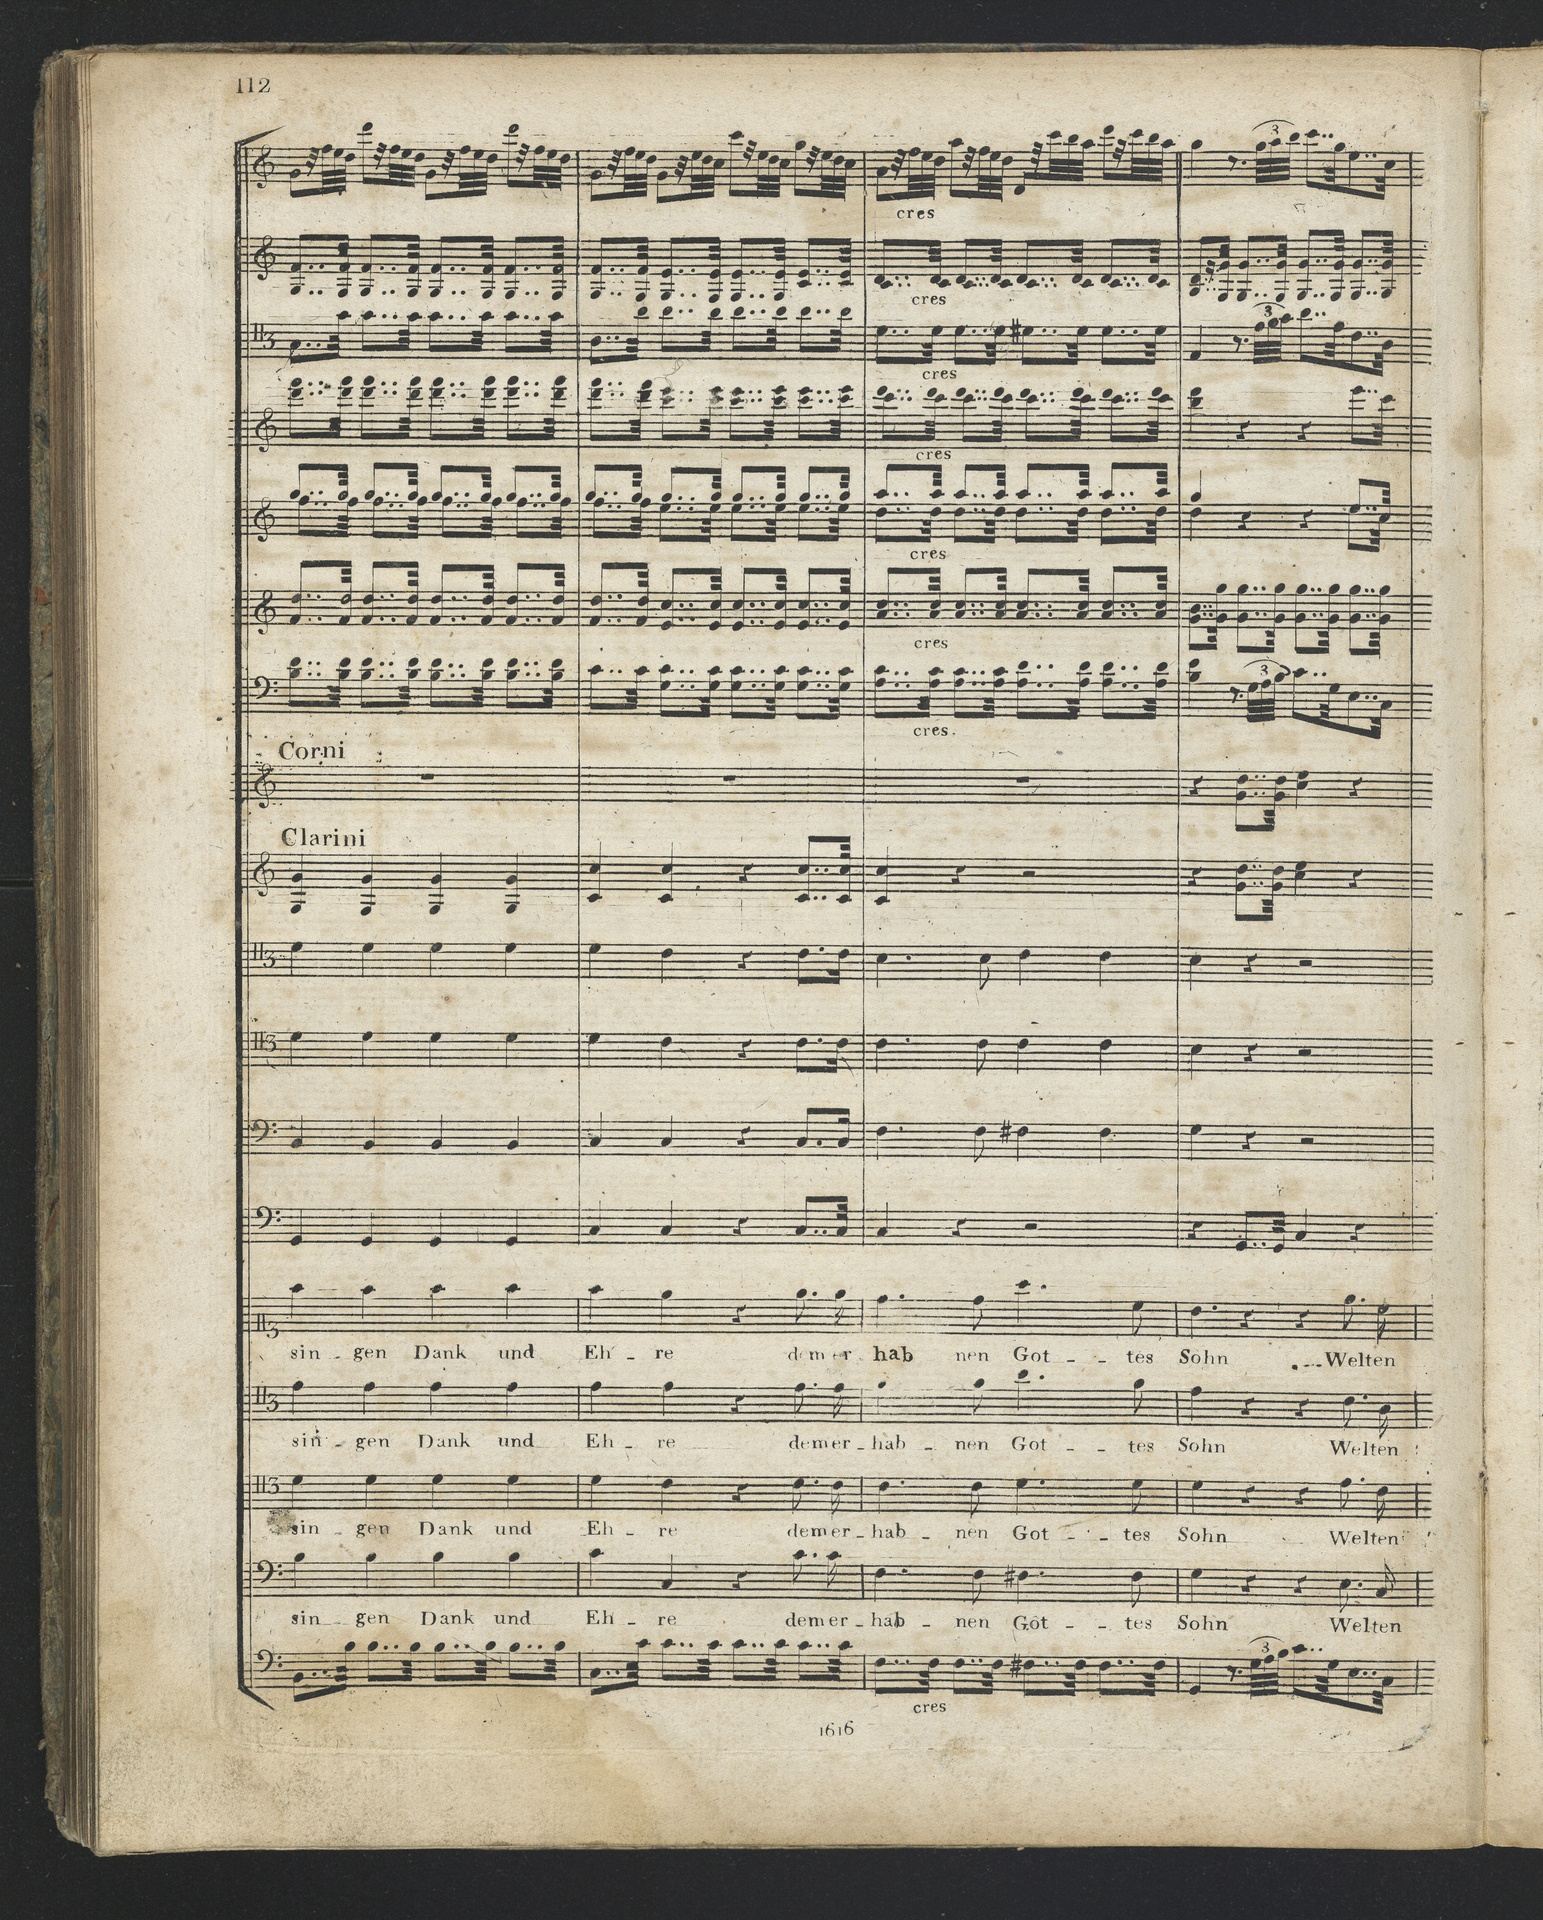 112
3
cres
cres
3
cres
cres
cres
cres
3
cres.
Corni
Clarini
sin - gen Dank und Eh - re dem er hab nen Got - - tes Sohn Welten
sin - gen Dank und Eh - re dem er - hab - nen Got - - tes Sohn Welten
sin - gen Dank und Eh - re dem er - hab - nen Got - - tes Sohn Welten
sin - gen Dank und Eh - re dem er - hab - nen Got - - tes Sohn Welten
3
cres
1616